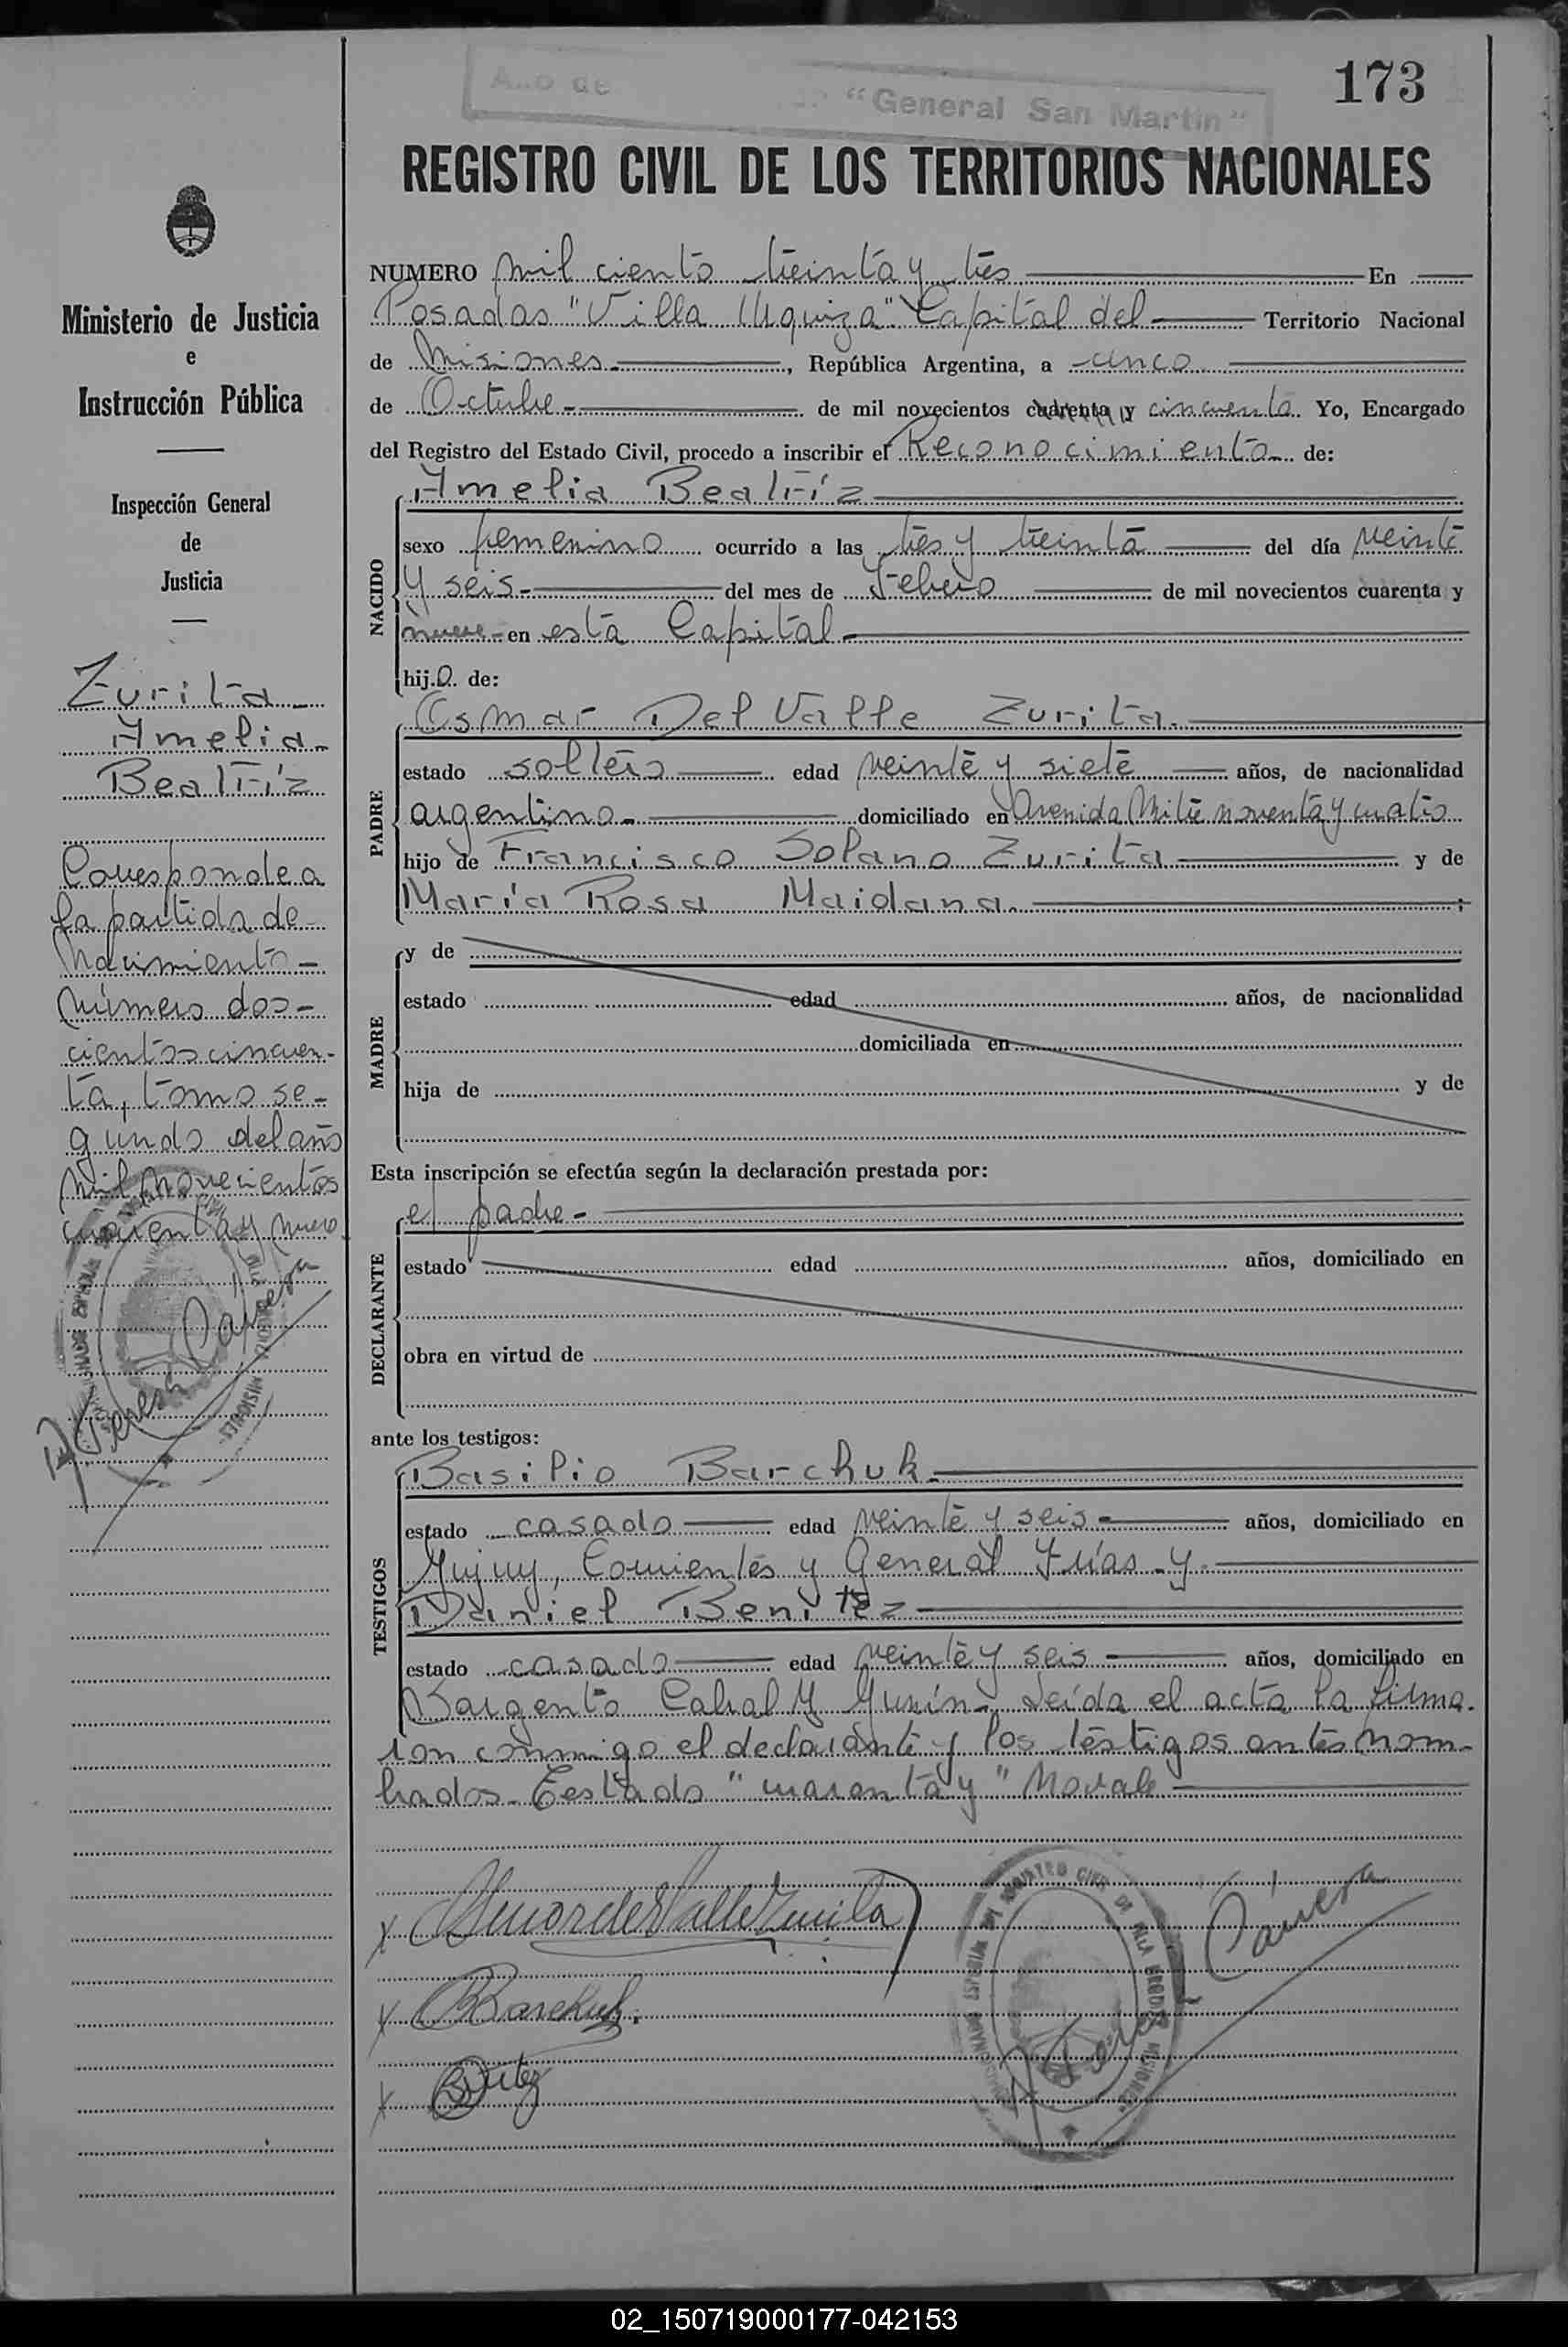 173
"General San Martín"
REGISTRO CIVIL DE LOS TERRITORIOS NACIONALES
Ministerio de Justicia
e
Instrucción Pública
Inspección General
de
Justicia
Zurita
Amelia
Beatríz
Corresponde a
la partida de
Nacimiento
número dos-
cientos cincuen-
ta, tomo se-
gundo del año
mil novecientos
cuarenta y nueve
NUMERO mil ciento treinta y tres En
Posadas "Villa Urquiza" Capital del Territorio Nacional
de Misiones, República Argentina, a cinco
de Octubre de mil novecientos cuarenta y cincuenta Yo, Encargado
del Registro del Estado Civil, procedo a inscribir el Reconocimiento de:
NACIDO
Amelia Beatríz
sexo femenino ocurrido a las tres y treinta del día veinte
y seis del mes de Febrero de mil novecientos cuarenta y
nueve en esta Capital
hija de:
PADRE
Osmar Del Valle Zurita.
estado soltero edad veinte y siete años, de nacionalidad
argentino domiciliado en Avenida Mitre noventa y cuatro
hijo de Francisco Solano Zurita y de
María Rosa Maidana. ;
MADRE
y de
estado edad años, de nacionalidad
domiciliada en
hija de y de
Esta inscripción se efectúa según la declaración prestada por:
DECLARANTE
el padre
estado edad años, domiciliado en
obra en virtud de
ante los testigos:
TESTIGOS
Basilio Barchuk
estado casado edad veinte y seis años, domiciliado en
Jujuy, Corrientes y General Frías y
Daniel Benitez
estado casado edad veinte y seis años, domiciliado en
Sargento Cabral y Junín. Leída el acta la firma-
ron conmigo el declarante y los testigos antes nom-
brados. Testado "cuarenta y" No vale
02_150719000177-042153